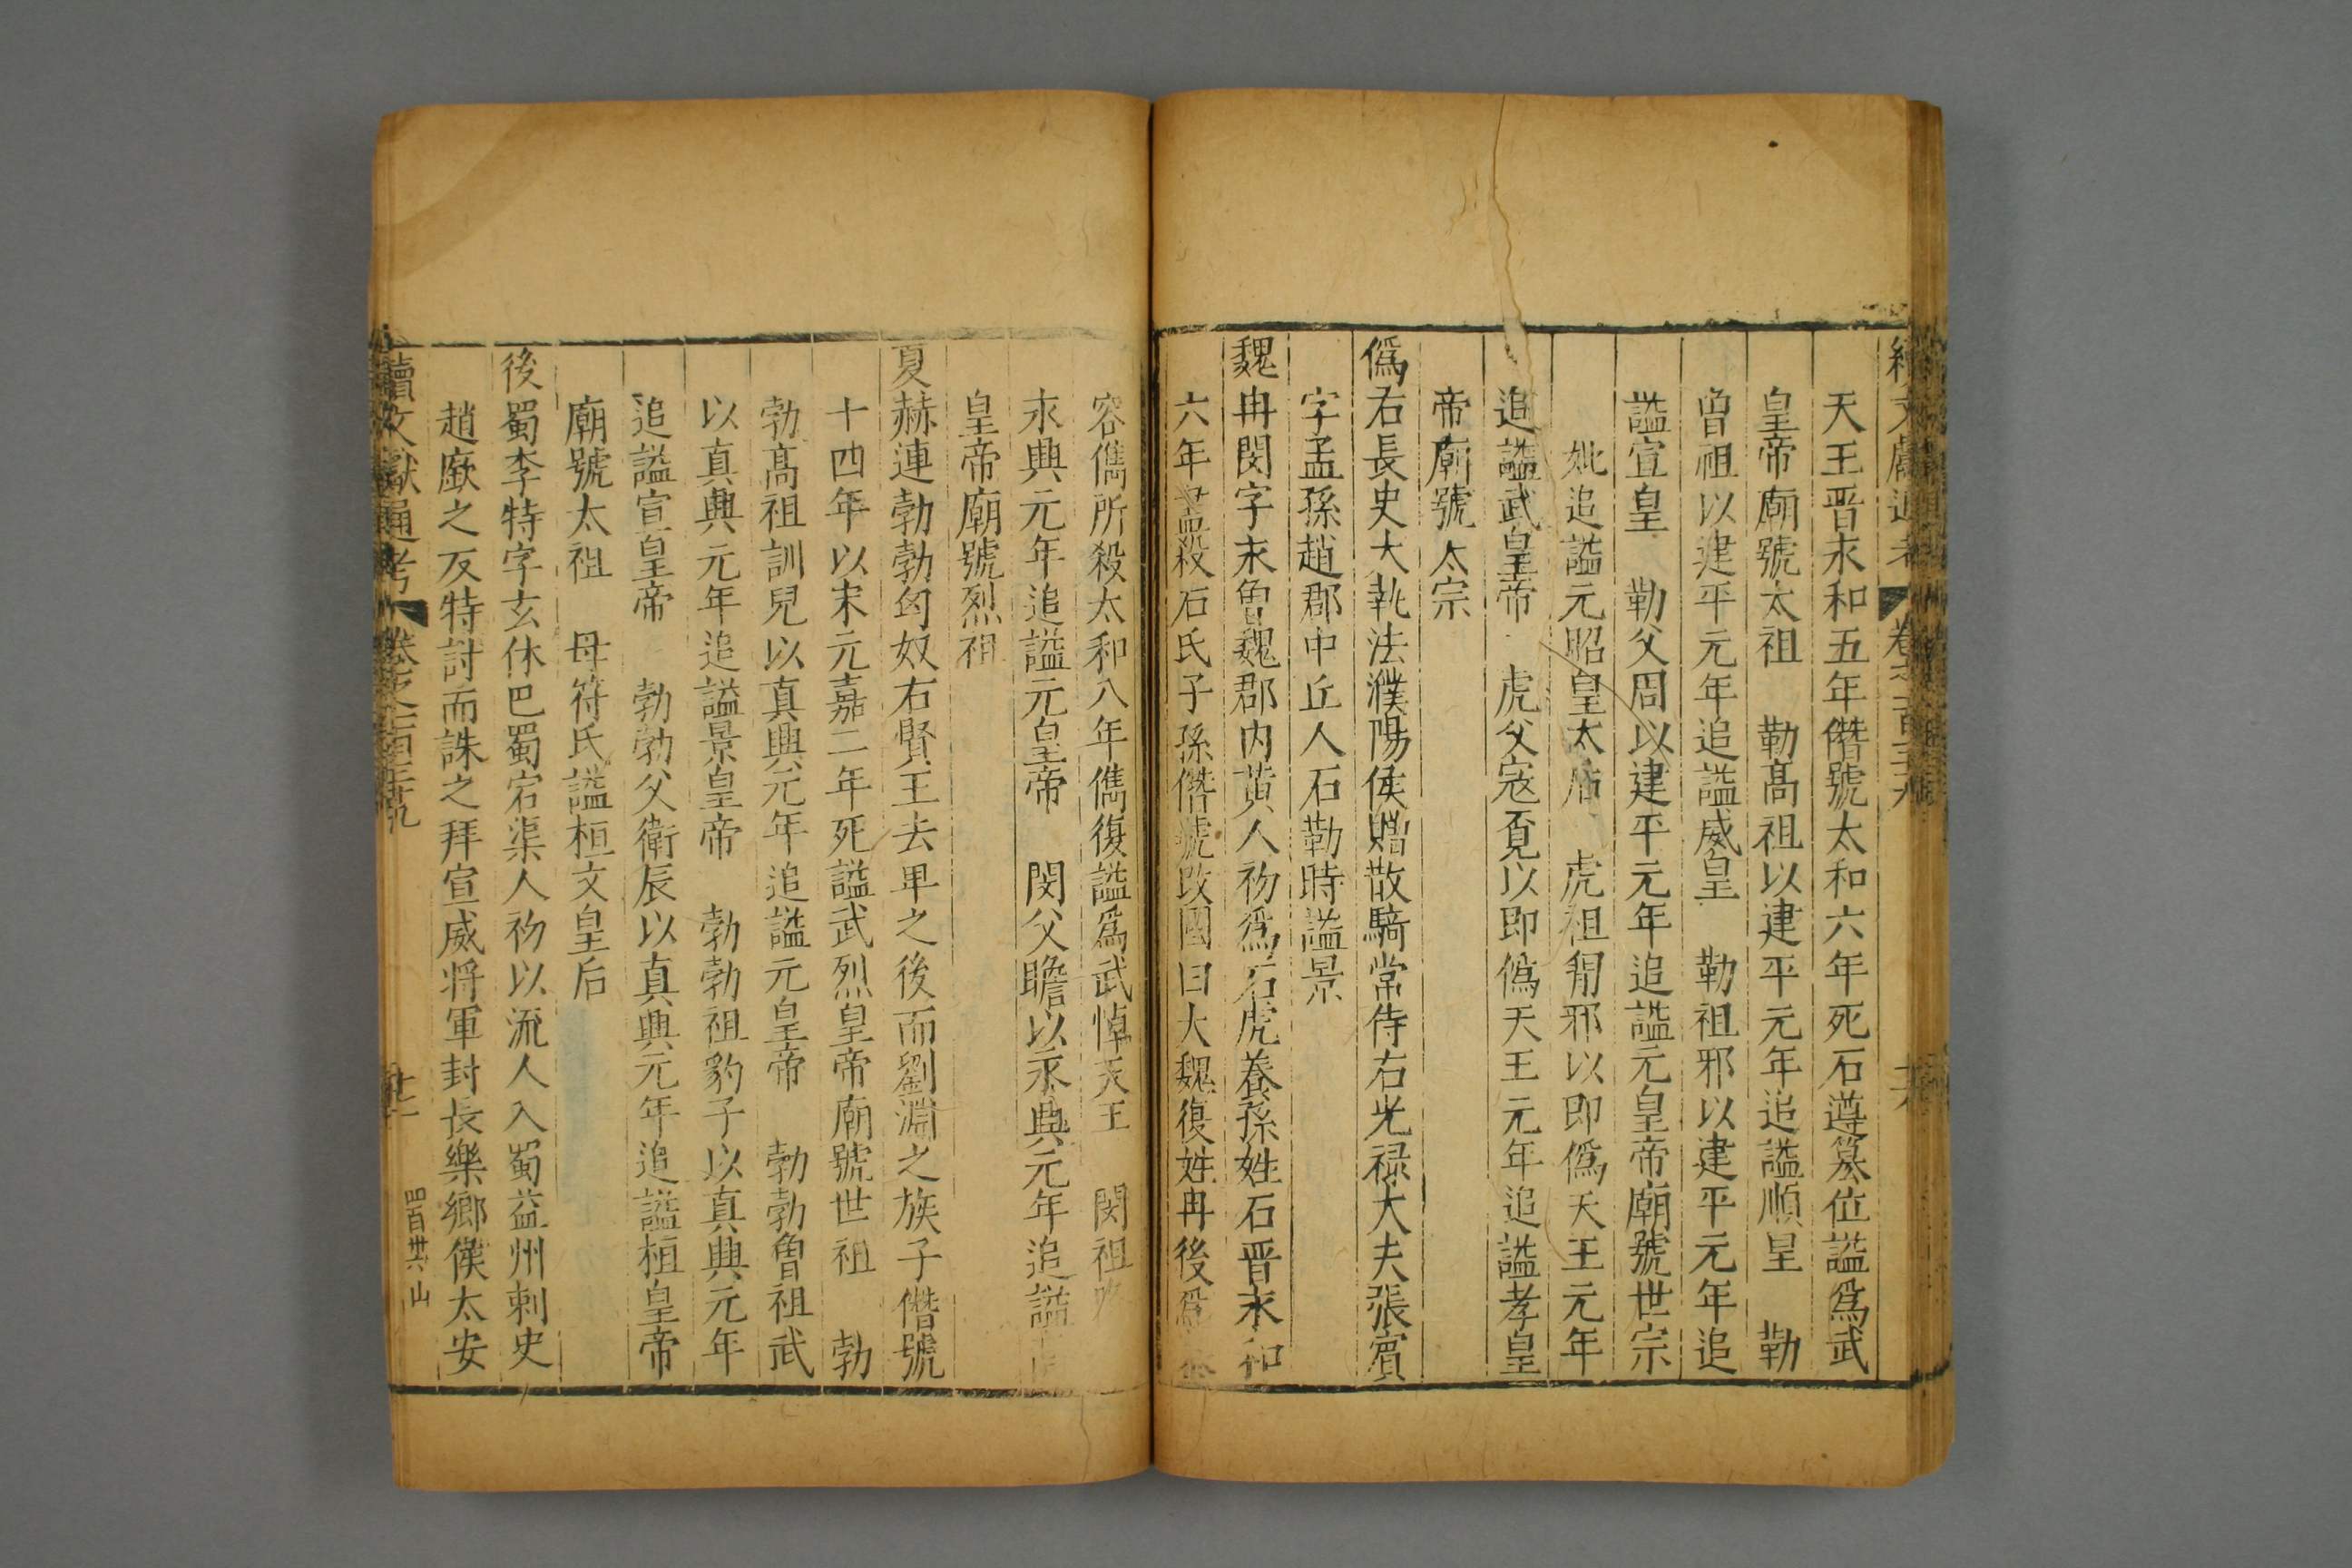 天王晋永和五年僣號太和六年死石遵篡位謚爲武
皇帝廟號太祖 勒髙祖以建平元年追謚順皇 勒
曾祖以建平元年追謚威皇 勒祖邪以建平元年追
謚宣皇 勒父周以建平元年追謚元皇帝廟號世宗
妣追謚元昭皇太后 虎祖㔯邪以即僞天王元年
追謚武皇帝 虎父寇覓以即僞天王元年追謚孝皇
帝廟號太宗
僞右長史大執法濮陽侯贈散騎常侍右光禄大夫張賓
字孟孫趙郡中丘人石勒時謚景
魏冉閔字永曾魏郡内黃人初爲石虎養孫姓石晋永和
六年盡殺石氏子孫僣號改國曰大魏復姓冉後爲
容儁所殺太和八年儁復謚爲武悼天王 閔祖
永興元年追謚元皇帝 閔父瞻以永興元年追謚
皇帝廟號烈祖
夏赫連勃勃匈奴右賢王去卑之後而劉淵之族子僣號
十四年以宋元嘉二年死謚武烈皇帝廟號世祖 勃
勃髙祖訓兒以真興元年追謚元皇帝 勃勃曾祖武
以真興元年追謚景皇帝 勃勃祖豹子以真興元年
追謚宣皇帝 勃勃父衛辰以真興元年追謚桓皇帝
廟號太祖 母符氏謚桓文皇后
後蜀李特字玄休巴蜀宕渠人初以流人入蜀益州刺史
趙廞之反特討而誅之拜宣威将軍封長樂鄉侯太安
續文獻通考 卷之一百三十九
四百卅六 山